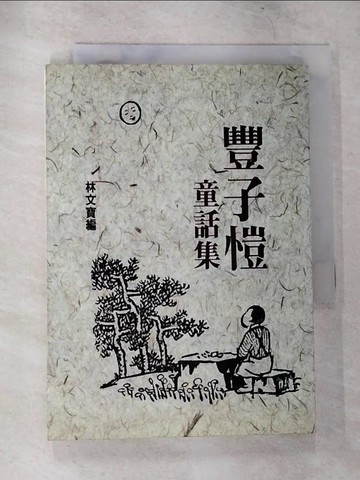 豐子愷
童話集
林文寶編